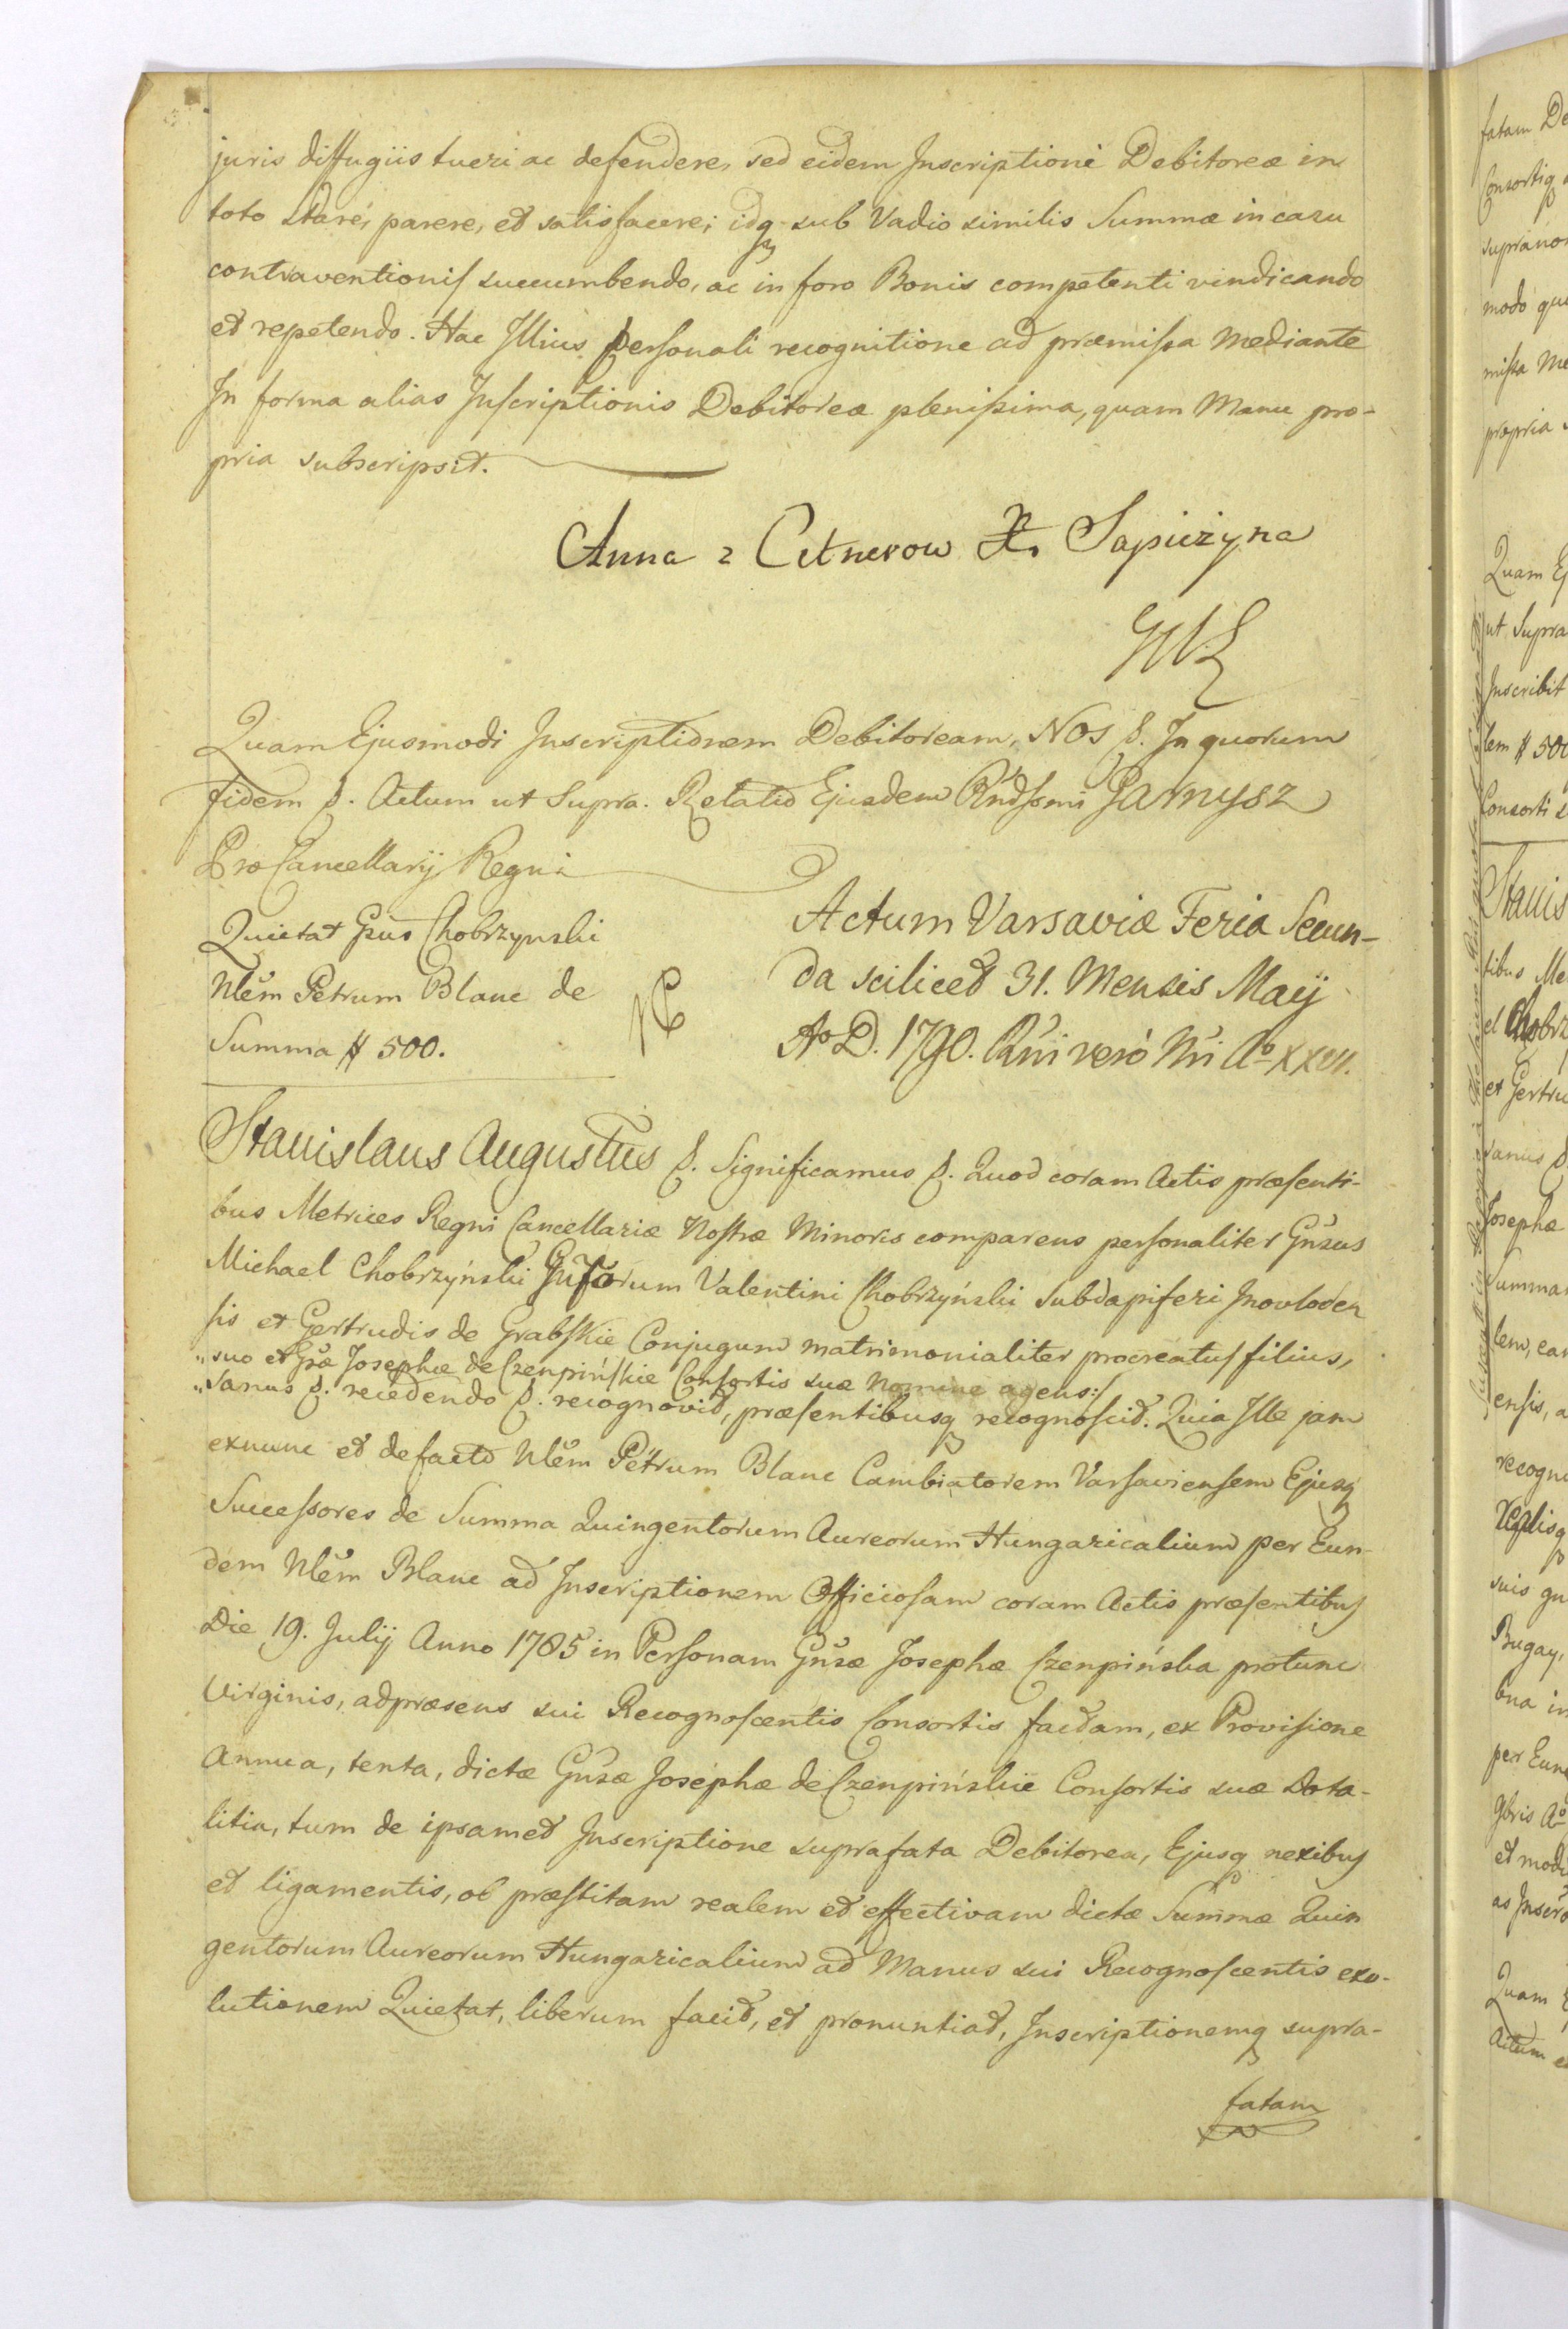 juris diffugiis tueri ac defendere, sed eidem Inscriptioni Debitoreæ in
toto stare, parere, et satisfacere; idq sub Vadio similis Summæ in casu
contraventionis succumbendo, ac in foro Bonis competenti vindicando
et repetendo. Hac Illius personali recognitione ad præmissa mediante
In forma alias Inscriptionis Debitoreæ plenissima, quam Manu pro-
pria subscripsit.
Anna z Cetnerow X. Sapieżyna
Quam Ejusmodi Inscriptionem Debitoream, Nos p. In quorum
fidem p. Actum ut Supra. Relatio Ejusdem Rndssmi Garnysz
ProCancellarij Regni
Quietat Gsus Chobrzynski
Nlem Petrum Blanc de
Summa # 500.
Actum Varsaviæ Feria Secun-
da scilicet 31. Mensis Maij
Ao D. 1790. Rni vero Nri Ao XXVI.
Stanislaus Augustus p. Significamus p. Quod coram Actis præsenti-
bus Metrices Regni Cancellariæ Nostræ Minoris comparens personaliter Gnsus
Michael Chobrzyński Gnsorum Valentini Chobrzyński Subdapiferi Inovloden
sis et Gertrudis de Grabskie Conjugum matrimonialiter procreatus filius,
"suo et Gsæ Josephæ de Czenpińskie Consortis suæ Nomine agens:/
"sanus p. recedendo p. recognovit, præsentibusq recognoscit. Quia Ille jam
exnunc et defacto Nlem Petrum Blanc Cambiatorem Varsaviensem Ejusq
Successores de Summa Quingentorum Aureorum Hungaricalium per Eun-
dem Nlem Blanc ad Inscriptionem Officiosam coram Actis præsentibus
Die 19. Julij Anno 1785 in Personam Gnsæ Josephæ Czenpińska protunc
Virginis, adpræsens sui Recognoscentis Consortis factam, ex Provisione
Annua, tenta, dictæ Gnsæ Josephæ de Czenpińskie Consortis suæ Dota-
litia, tum de ipsamet Inscriptione suprafata Debitorea, Ejusq nexibus
et ligamentis, ob præstitam realem et effectivam dictæ Summæ Quin
gentorum Aureorum Hungaricalium ad Manus sui Recognoscentis exo-
lutionem Quietat, liberum facit, et pronuntiat, Inscriptionemq supra-
fatam
fatam
Consortiq
modo
missa
propria
Quam
ut Supra
Inscribit
Consorti
Stanis
tibus
et Gertru
Josephæ
Summa
ensis,
recogn
suis
Bugay,
per Eun
et mod
Quam
Actum